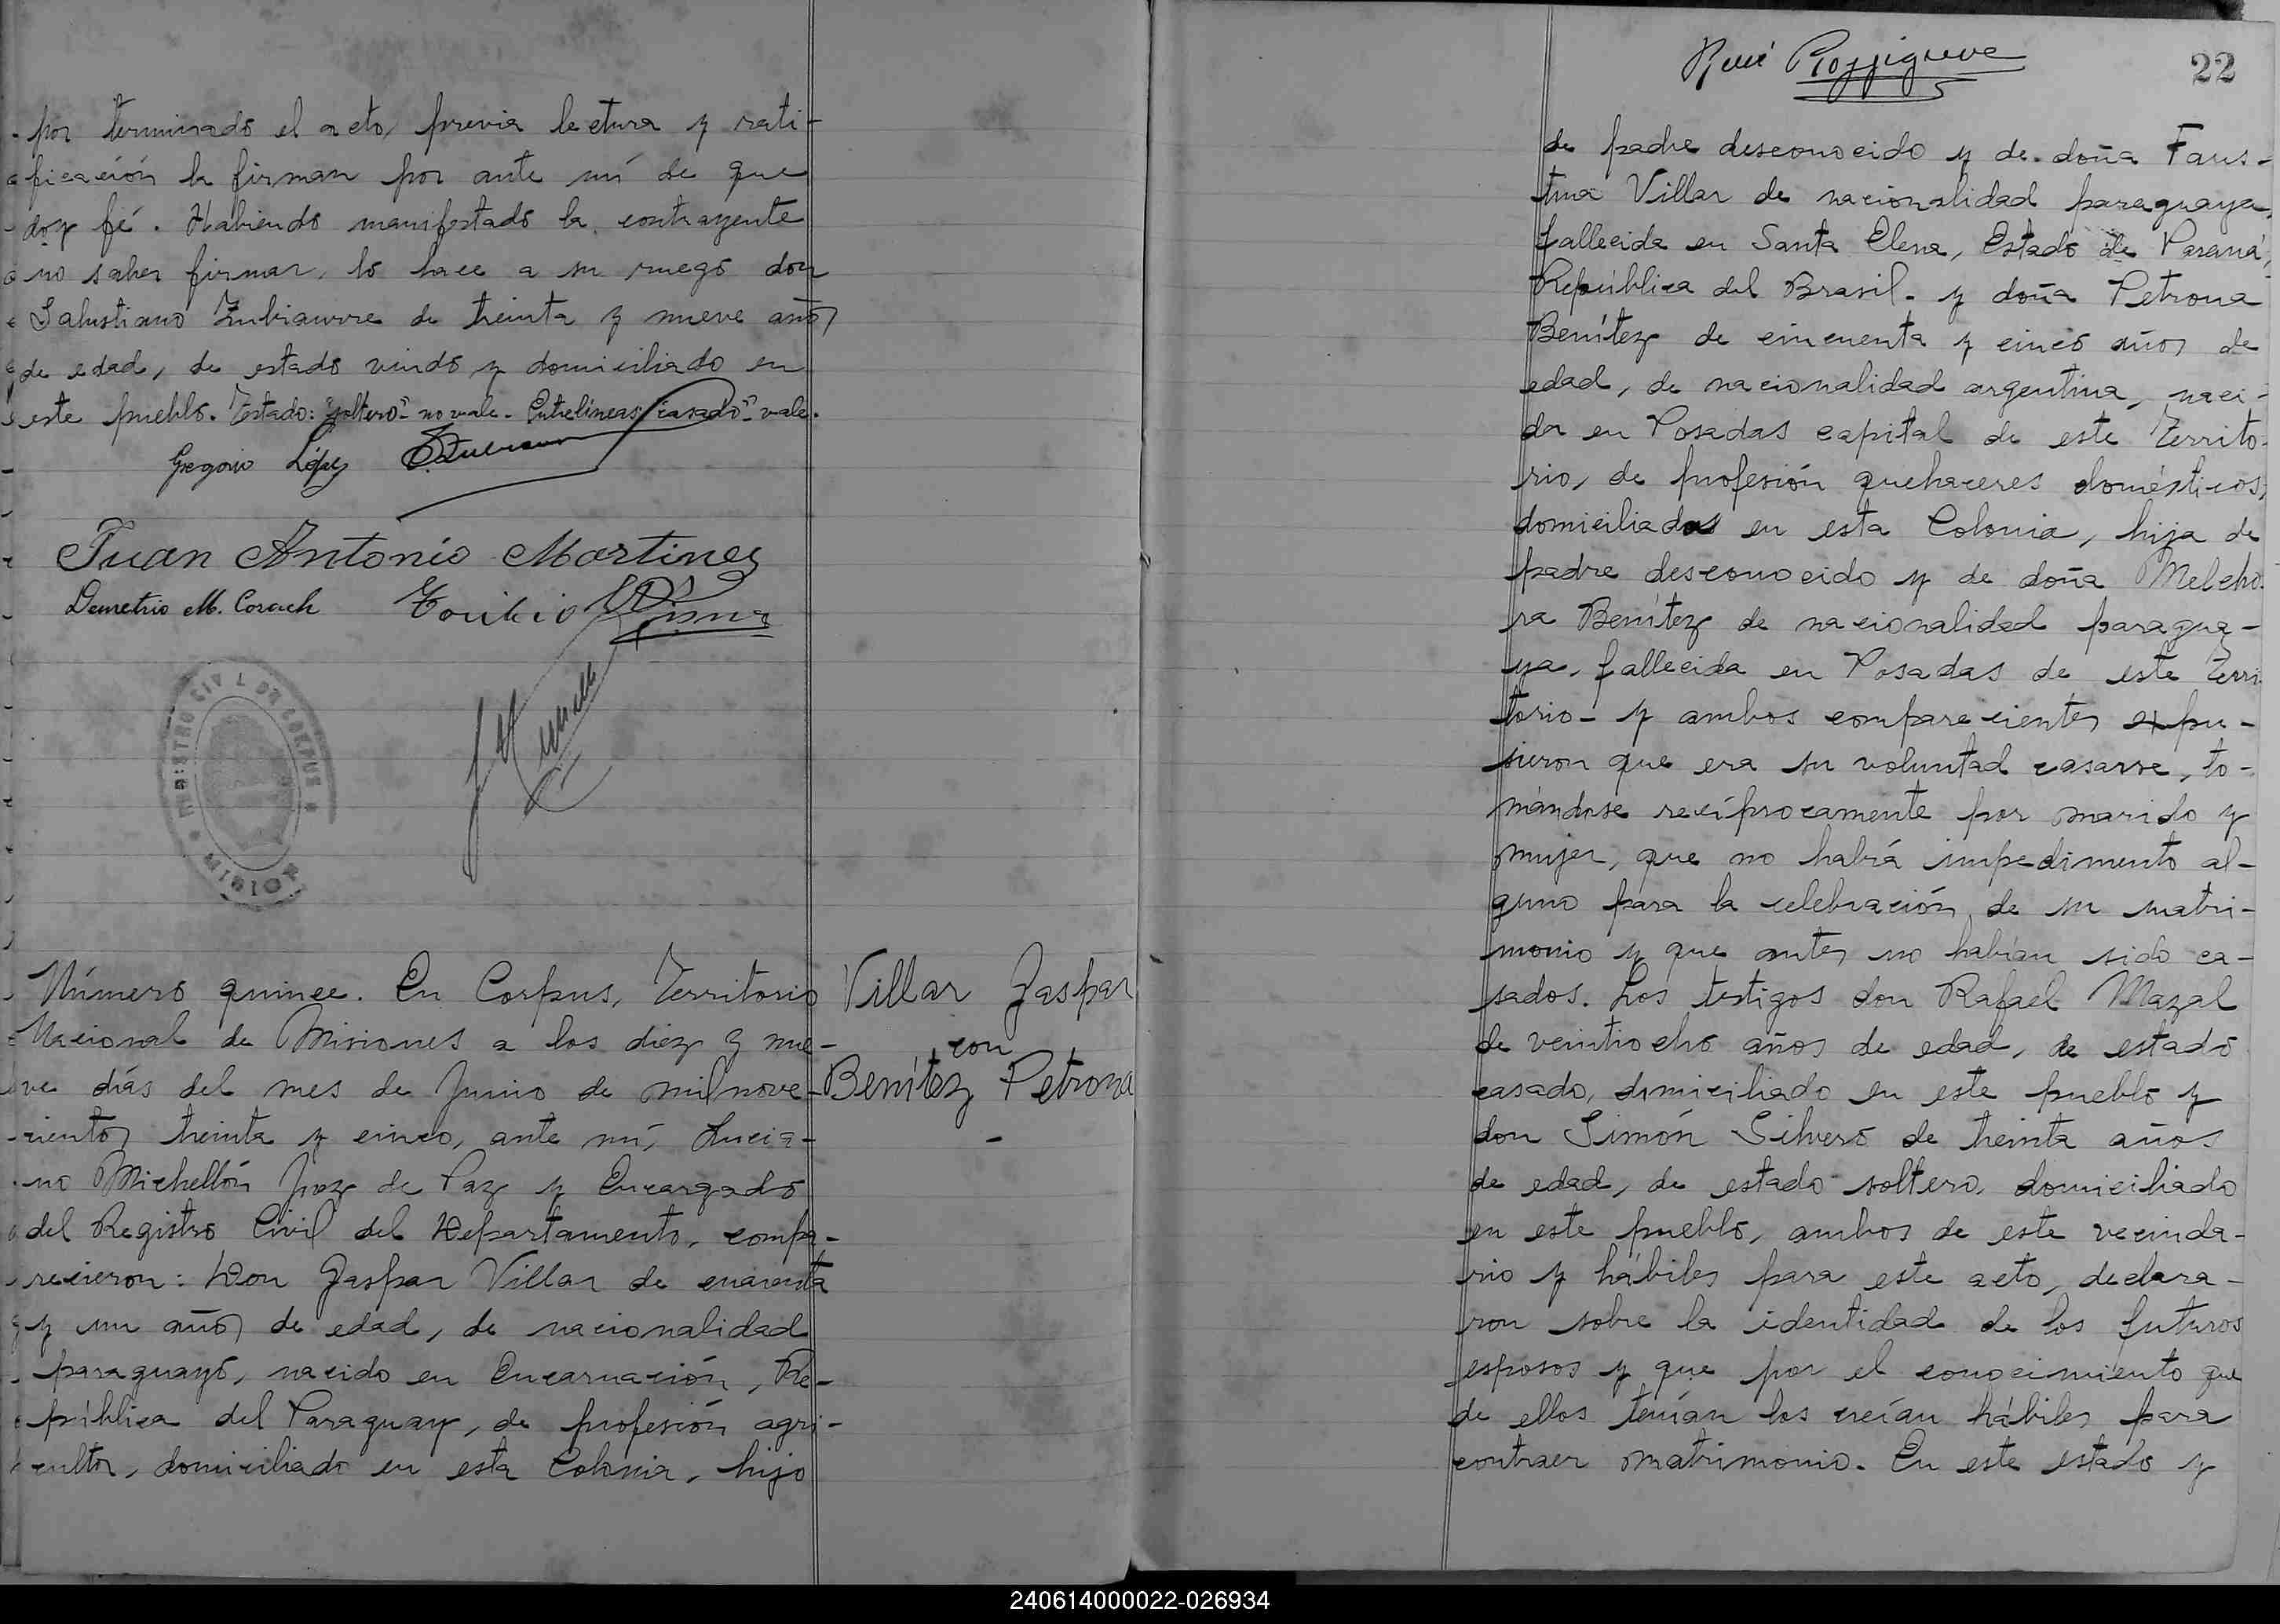 por terminado el acto, previa lectura y rati-
ficación la firman por ante mí de que
doy fé. Habiendo manifestado la contrayente
no saber firmar, lo hace a su ruego don
Salustiano Zubiaurre de treinta y nueve años
de edad, de estado viudo y domiciliado en
este pueblo. Testado: "soltero" no vale. Entrelíneas: "casado" vale.
Gregorio López
Juan Antonio Martinez
Demetrio M. Corach Toribio
REGISTRO CIVIL DE CORPUS
MISIONES
Número quince. En Corpus, Territorio
Nacional de Misiones a los diez y nue-
ve días del mes de Junio de mil nove-
cientos treinta y cinco, ante mí, Lucia-
no Michellón Juez de Paz y Encargado
del Registro Civil del Departamento, compa-
recieron: Don Gaspar Villar de cuarenta
y un años de edad, de nacionalidad
paraguayo, nacido en Encarnación, Re-
pública del Paraguay, de profesión agri-
cultor, domiciliado en esta Colonia, hijo
Villar Gaspar
con
Benítez Petrona
-
22
de padre desconocido y de doña Faus-
tina Villar de nacionalidad paraguaya,
fallecida en Santa Elena, Estado de Paraná,
República del Brasil. y doña Petrona
Benítez de cincuenta y cinco años de
edad, de nacionalidad argentina, naci-
da en Posadas capital de este Territo-
rio, de profesión quehaceres domésticos,
domiciliados en esta Colonia, hija de
padre desconocido y de doña Melcho-
ra Benítez de nacionalidad paragua-
ya, fallecida en Posadas de este Terri-
torio- y ambos comparecientes expu-
sieron que era su voluntad casarse, to-
mándose recíprocamente por marido y
mujer, que no había impedimento al-
guno para la celebración de su matri-
monio y que antes no habían sido ca-
sados. Los testigos don Rafael Mazal
de veintiocho años de edad, de estado
casado, domiciliado en este pueblo y
don Simón Silvero de treinta años
de edad, de estado soltero, domiciliado
en este pueblo, ambos de este vecinda-
rio y hábiles para este acto, declara-
ron sobre la identidad de los futuros
esposos y que por el conocimiento que
de ellos tenían los creían hábiles para
contraer matrimonio. En este estado y
240614000022-026934